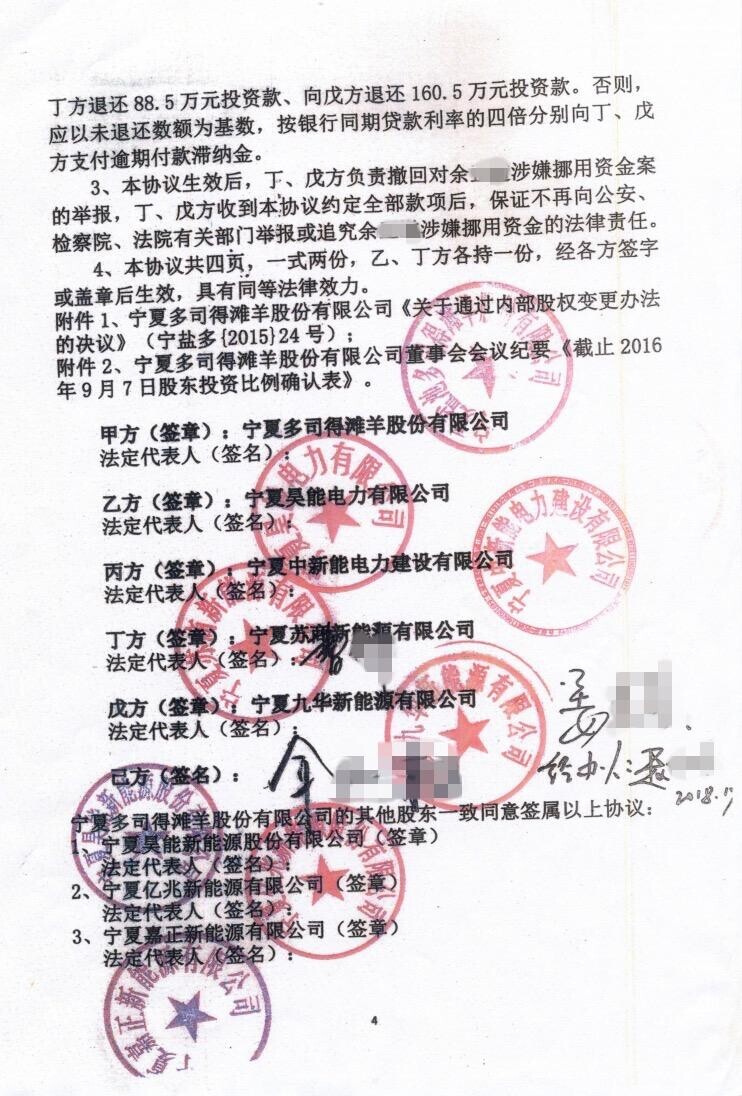 丁方退还88.5万元投资款、向戊方退还160.5万元投资款。否则，
应以未退还数额为基数，按银行同期贷款利率的四倍分别向丁、戊
方支付逾期付款滞纳金。
3、本协议生效后，丁、戊方负责撤回对余 涉嫌挪用资金案
的举报，丁、戊方收到本协议约定全部款项后，保证不再向公安、
检察院、法院有关部门举报或追究余 涉嫌挪用资金的法律责任。
4、本协议共四页，一式两份，乙、丁方各持一份，经各方签字
或盖章后生效，具有同等法律效力。
附件1、宁夏多司得滩羊股份有限公司《关于通过内部股权变更办法
的决议》（宁盐多{2015}24号）；
附件2、宁夏多司得滩羊股份有限公司董事会会议纪要《截止2016
年9月7日股东投资比例确认表》。
甲方（签章）：宁夏多司得滩羊股份有限公司
法定代表人（签名）：
乙方（签章）：宁夏昊能电力有限公司
法定代表人（签名）：
丙方（签章）：宁夏中新能电力建设有限公司
法定代表人（签名）：
丁方（签章）：宁夏苏商新能源有限公司
法定代表人（签名）：
戊方（签章）：宁夏九华新能源有限公司
法定代表人（签名）：
姜
己方（签名）：余
经办人：聂
2018.11
宁夏多司得滩羊股份有限公司的其他股东一致同意签属以上协议：
1、宁夏昊能新能源股份有限公司（签章）
法定代表人（签名）：
2、宁夏亿兆新能源有限公司（签章）
法定代表人（签名）：
3、宁夏嘉正新能源有限公司（签章）
法定代表人（签名）：
4